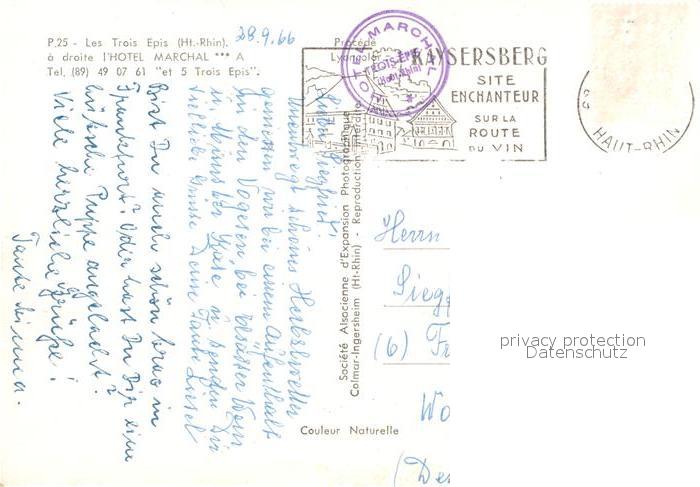 P.25 - Les Trois Epis (Ht.-Rhin).
à droite l'HOTEL MARCHAL *** A
Tel. (89) 49 07 61 "et 5 Trois Epis".
28.9.66
Procédé
Lyangolor
HOTEL MARCHAL
TROIS-EPIS
(Haut-Rhin)
KAYSERSBERG
SITE
ENCHANTEUR
SUR LA
ROUTE
DU VIN
HAUT-RHIN
Société Alsacienne d'Expansion Photographique
Colmar-Ingersheim (Ht-Rhin) - Reproduction interdite
Couleur Naturelle
Lieber Siegfried!
Unentwegt schönes Herbstwetter
geniessen wir bei einem Aufenthalt
in den Vogesen, bei Elsässer Wein
u. Münster Käse u. senden Dir
Grüsse Deine Tante Liesel
Bist Du auch schön brav in
Frankfurt? Oder hast Du Dir eine
hübsche Puppe angelacht?
Viele herzliche Grüße!
Tante
Herrn
Siegf
(6) Fr
Wo
(De
privacy protection
Datenschutz